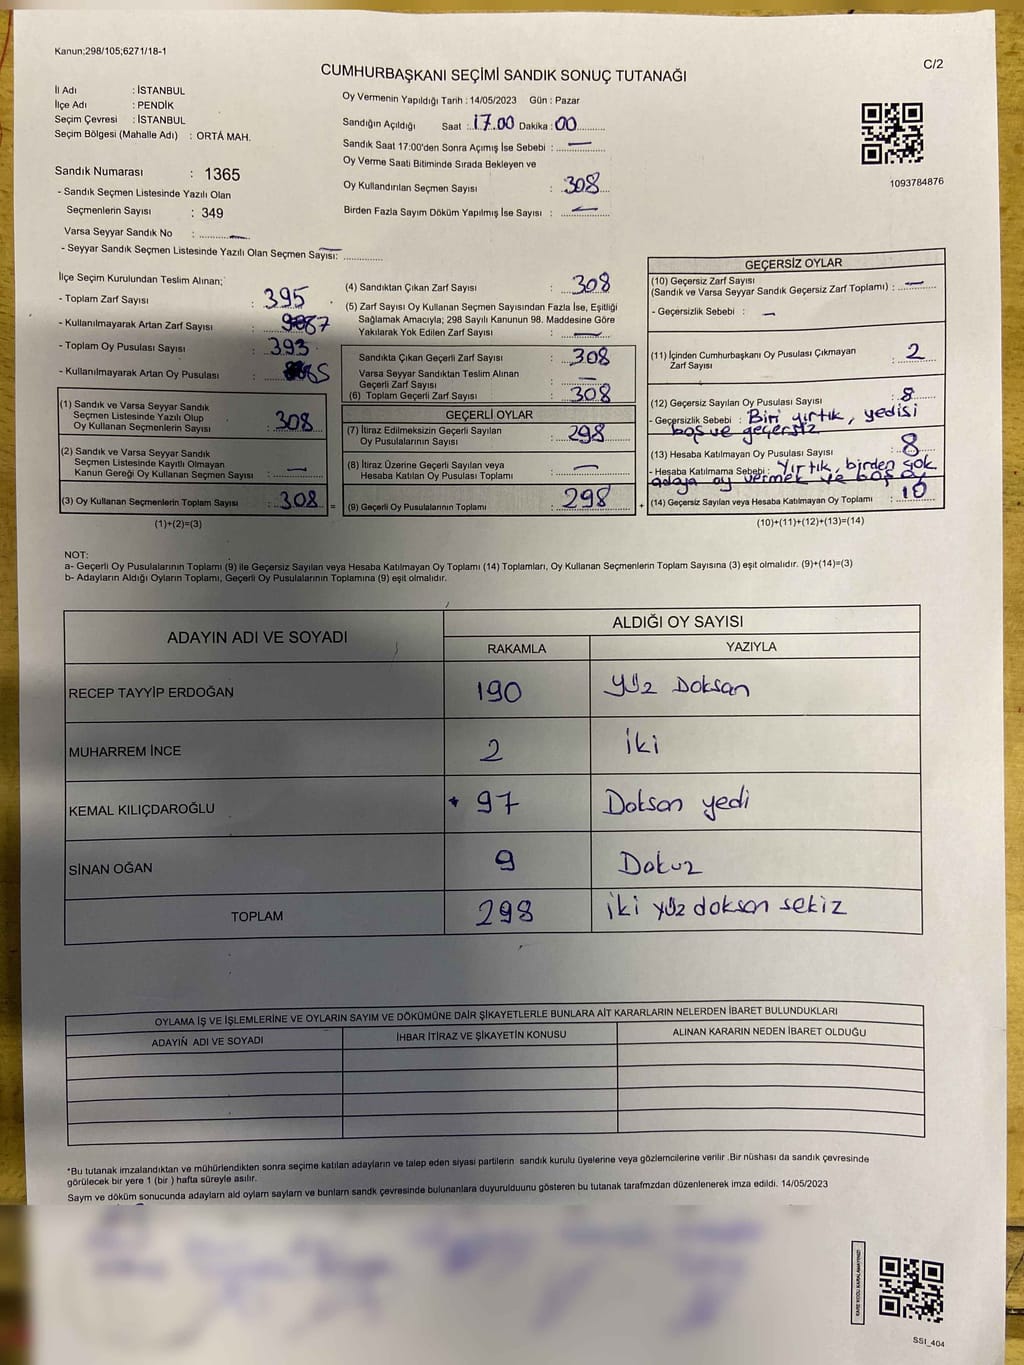 Kanun;298/105;6271/18-1
C/2
CUMHURBAŞKANI SEÇİMİ SANDIK SONUÇ TUTANAĞI
İl Adı : İSTANBUL
İlçe Adı : PENDİK
Seçim Çevresi : İSTANBUL
Seçim Bölgesi (Mahalle Adı) : ORTA MAH.
Oy Vermenin Yapıldığı Tarih : 14/05/2023 Gün : Pazar
Sandığın Açıldığı Saat : 17.00 Dakika : 00
Sandık Saat 17:00'den Sonra Açımış İse Sebebi : —
Oy Verme Saati Bitiminde Sırada Bekleyen ve
Oy Kullandırılan Seçmen Sayısı : 308
Birden Fazla Sayım Döküm Yapılmış İse Sayısı : —
1093784876
Sandık Numarası : 1365
- Sandık Seçmen Listesinde Yazılı Olan
Seçmenlerin Sayısı : 349
Varsa Seyyar Sandık No : —
- Seyyar Sandık Seçmen Listesinde Yazılı Olan Seçmen Sayısı: —
İlçe Seçim Kurulundan Teslim Alınan;
- Toplam Zarf Sayısı : 395
- Kullanılmayarak Artan Zarf Sayısı : 87
- Toplam Oy Pusulası Sayısı : 393
- Kullanılmayarak Artan Oy Pusulası : 85
(1) Sandık ve Varsa Seyyar Sandık
Seçmen Listesinde Yazılı Olup
Oy Kullanan Seçmenlerin Sayısı : 308
(2) Sandık ve Varsa Seyyar Sandık
Seçmen Listesinde Kayıtlı Olmayan
Kanun Gereği Oy Kullanan Seçmen Sayısı : —
(3) Oy Kullanan Seçmenlerin Toplam Sayısı : 308 =
(1)+(2)=(3)
(4) Sandıktan Çıkan Zarf Sayısı : 308
(5) Zarf Sayısı Oy Kullanan Seçmen Sayısından Fazla İse, Eşitliği
Sağlamak Amacıyla; 298 Sayılı Kanunun 98. Maddesine Göre
Yakılarak Yok Edilen Zarf Sayısı : —
Sandıkta Çıkan Geçerli Zarf Sayısı : 308
Varsa Seyyar Sandıktan Teslim Alınan
Geçerli Zarf Sayısı : —
(6) Toplam Geçerli Zarf Sayısı : 308
GEÇERLİ OYLAR
(7) İtiraz Edilmeksizin Geçerli Sayılan
Oy Pusulalarının Sayısı : 298
(8) İtiraz Üzerine Geçerli Sayılan veya
Hesaba Katılan Oy Pusulası Toplamı : —
(9) Geçerli Oy Pusulalarının Toplamı : 298 +
GEÇERSİZ OYLAR
(10) Geçersiz Zarf Sayısı
(Sandık ve Varsa Seyyar Sandık Geçersiz Zarf Toplamı) : —
- Geçersizlik Sebebi : —
(11) İçinden Cumhurbaşkanı Oy Pusulası Çıkmayan
Zarf Sayısı : 2
(12) Geçersiz Sayılan Oy Pusulası Sayısı : 8
- Geçersizlik Sebebi : Biri yırtık, yedisi
boş ve geçersiz
(13) Hesaba Katılmayan Oy Pusulası Sayısı : 8
- Hesaba Katılmama Sebebi : Yırtık, birden çok
adaya oy vermek ve boş oy
(14) Geçersiz Sayılan veya Hesaba Katılmayan Oy Toplamı : 10
(10)+(11)+(12)+(13)=(14)
NOT:
a- Geçerli Oy Pusulalarının Toplamı (9) ile Geçersiz Sayılan veya Hesaba Katılmayan Oy Toplamı (14) Toplamları, Oy Kullanan Seçmenlerin Toplam Sayısına (3) eşit olmalıdır. (9)+(14)=(3)
b- Adayların Aldığı Oyların Toplamı, Geçerli Oy Pusulalarının Toplamına (9) eşit olmalıdır.
ADAYIN ADI VE SOYADI
ALDIĞI OY SAYISI
RAKAMLA YAZIYLA
RECEP TAYYİP ERDOĞAN 190 Yüz Doksan
MUHARREM İNCE 2 iki
KEMAL KILIÇDAROĞLU * 97 Doksan yedi
SİNAN OĞAN 9 Dokuz
TOPLAM 298 iki yüz doksan sekiz
OYLAMA İŞ VE İŞLEMLERİNE VE OYLARIN SAYIM VE DÖKÜMÜNE DAİR ŞİKAYETLERLE BUNLARA AİT KARARLARIN NELERDEN İBARET BULUNDUKLARI
ADAYIN ADI VE SOYADI İHBAR İTİRAZ VE ŞİKAYETİN KONUSU ALINAN KARARIN NEDEN İBARET OLDUĞU
*Bu tutanak imzalandıktan ve mühürlendikten sonra seçime katılan adayların ve talep eden siyasi partilerin sandık kurulu üyelerine veya gözlemcilerine verilir .Bir nüshası da sandık çevresinde
görülecek bir yere 1 (bir ) hafta süreyle asılır.
Saym ve döküm sonucunda adaylarn ald oylarn saylarn ve bunlarn sandk çevresinde bulunanlara duyurulduunu gösteren bu tutanak tarafmzdan düzenlenerek imza edildi. 14/05/2023
SSI_404